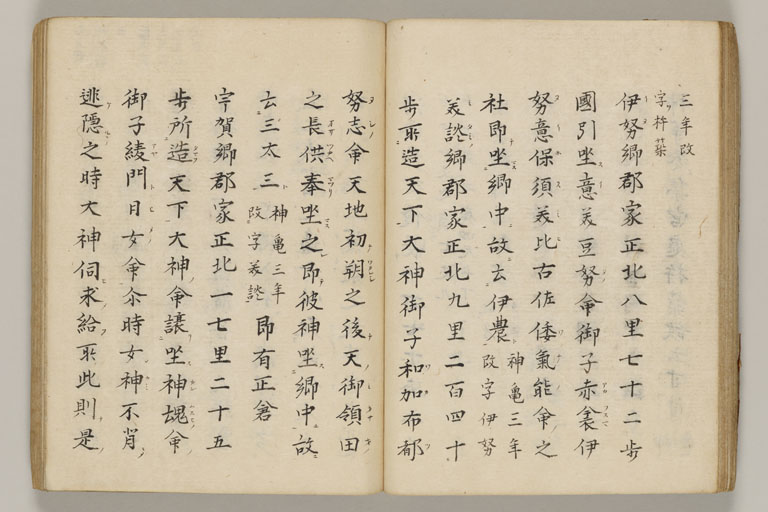 三年改
字杵築
伊努郷郡家正北八里七十二歩
國引坐意美豆努命御子赤衾伊
努意保須美比古佐倭氣能命之
社即坐郷中故云伊農神亀三年改字伊努
美談郷郡家正北九里二百四十
歩所造天下大神御子和加布都
努志命天地初朔之後天御領田
之長供奉坐之即彼神坐郷中故
云三太三神亀三年改字美談即有正倉
宇賀郷郡家正北一七里二十五
歩所造天下大神命譲坐神魂命
御子綾門日女命尒時女神不肯
逃隠之時大神伺求給所此則是